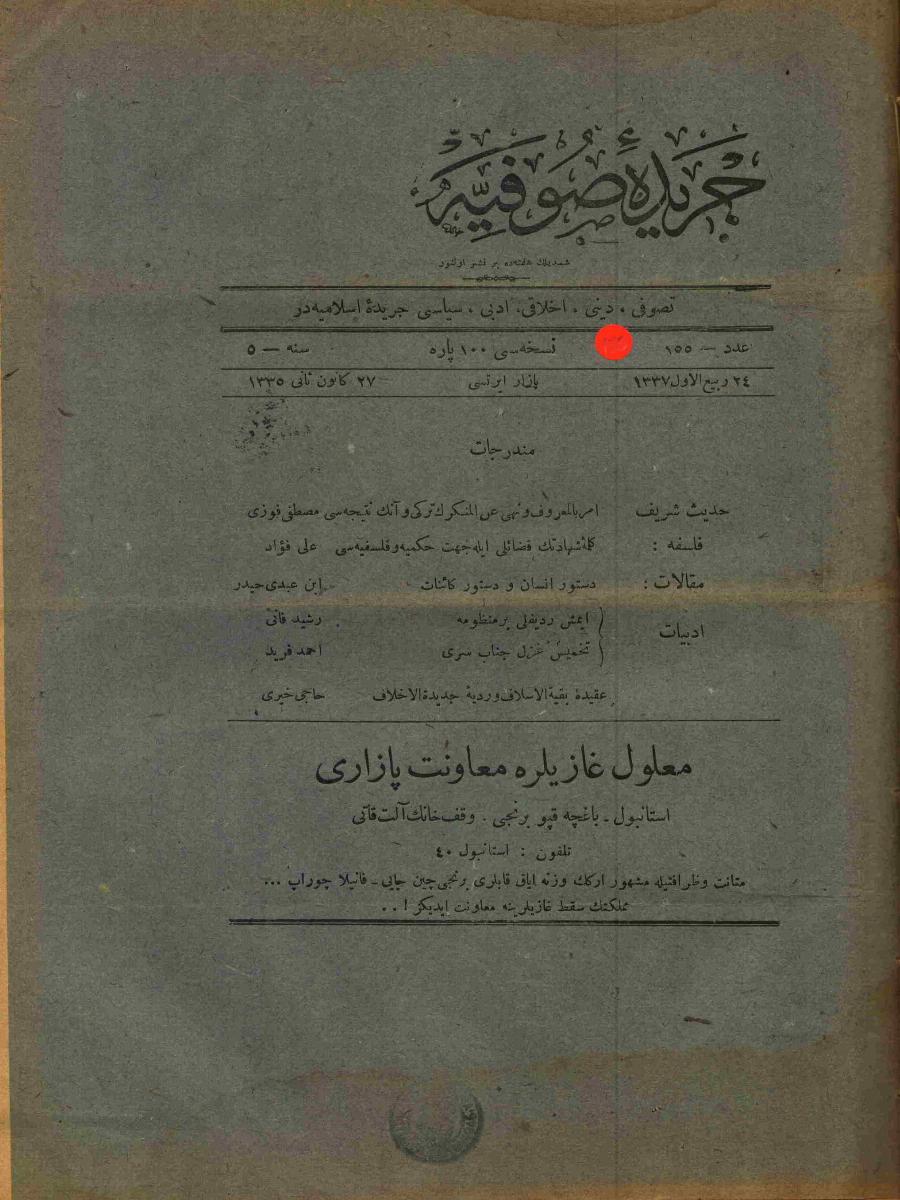 جريدۀ صوفيه
شمديلك هفته‌ده بر نشر اولنور
تصوفى ، دينى ، اخلاقى ، ادبى ، سياسى جريدۀ اسلاميه‌در
عدد — ١٥٥ نسخه‌سى ١٠٠ پاره سنه — ٥
٢٤ ربيع الاول ١٣٣٧ بازار ايرتسى ٢٧ كانون ثانى ١٣٣٥
مندرجات
حديث شريف امر بالمعروف و نهى عن المنكرك تركى و آنك نتيجه‌سى مصطفى فوزى
فلسفه : كلمۀ شهادتك فضائلى ايله جهت حكميه و فلسفيه‌سى على فؤاد
مقالات : دستور انسان و دستور كائنات ابن عبدى حيدر
ادبيات
ايمش رديفلى بر منظومه رشيد فانى
تخميس غزل جناب سرى احمد فريد
عقيدۀ بقية الاسلاف وردية جديدة الاخلاف حاجى خيرى
معلول غازيلره معاونت پازارى
استانبول ـ باغچه قپو برنجى . وقف خانك آلت قاتى
تلفون : استانبول ٤٠
متانت وظرافتيله مشهور اركك وزنه اياق قابلرى برنجى چين چايى ـ فانيلا چوراپ ...
مملكتك سقط غازيلرينه معاونت ايديكز ! ..